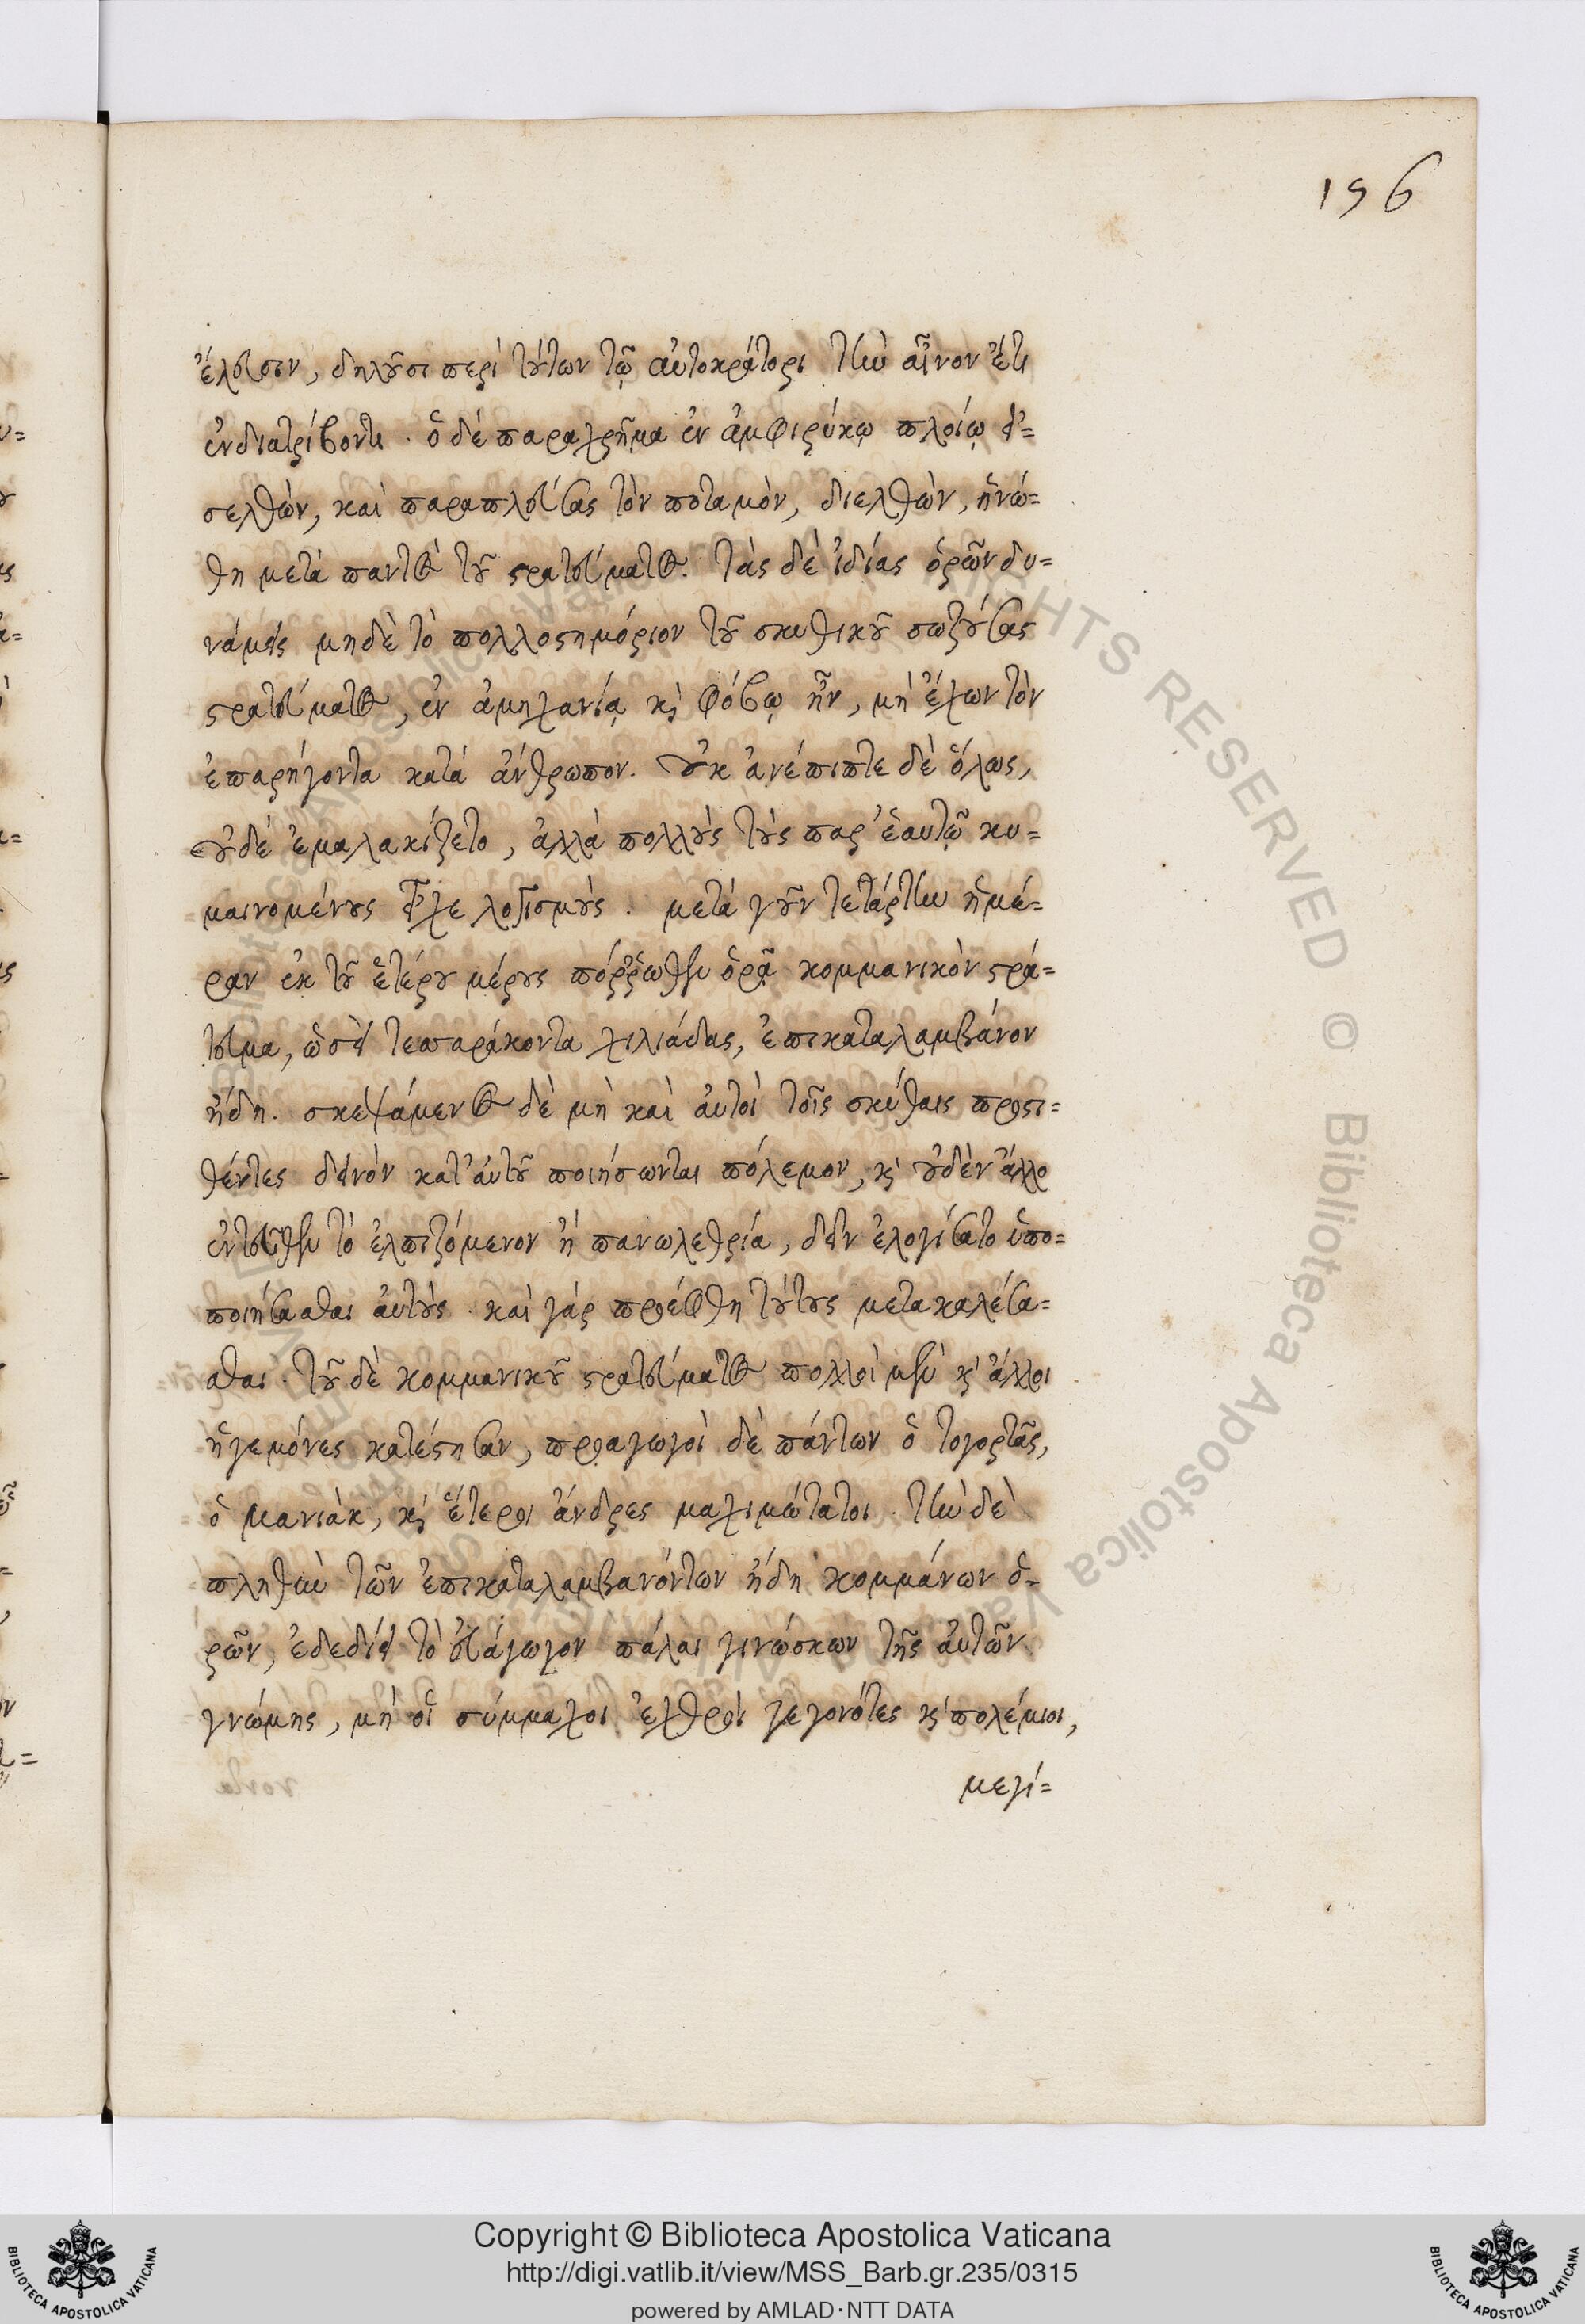 156
έλευσιν, δηλοῦσι περὶ τούτων τῷ αὐτοκράτορι τὴν αἶνον ἔτι
ἐνδιατρίβοντι. ὁ δὲ παραχρῆμα ἐν ἀμφιρύκῳ πλοίῳ εἰ=
σελθὼν, καὶ παραπλεύσας τὸν ποταμὸν, διελθὼν, ἡνώ=
θη μετὰ παντὸς τοῦ στρατεύματος. τὰς δὲ ἰδίας ὁρῶν δυ=
νάμεις μηδὲ τὸ πολλοστημόριον τοῦ σκυθικοῦ σωζούσας
στρατεύματος, ἐν ἀμηχανίᾳ κὶ φόβῳ ἦν, μὴ ἔχων τὸν
ἐπαρήγοντα κατὰ ἄνθρωπον. οὐκ ἀνέπιπτε δὲ ὅλως,
οὐδὲ ἐμαλακίζετο, ἀλλὰ πολλοὺς τοὺς παρ' ἑαυτῷ κυ=
μαινομένους εἶχε λογισμούς. μετὰ γοῦν τετάρτην ἡμέ=
ραν ἐκ τοῦ ἑτέρου μέρους πόῤῥωθεν ὁρᾷ κομμανικὸν στρά=
τευμα, ὡσεὶ τεσσαράκοντα χιλιάδας, ἐπικαταλαμβάνον
ἤδη. σκεψάμενος δὲ μὴ καὶ αὐτοὶ τοῖς σκύθαις προστι=
θέντες δεινὸν κατ' αὐτοῦ ποιήσωνται πόλεμον, κὶ οὐδὲν ἄλλο
ἐντεῦθεν τὸ ἐλπιζόμενον ἢ πανωλεθρία, δεῖν ἐλογίσατο ὑπο=
ποιήσασθαι αὐτούς. καὶ γὰρ προέφθη τούτους μετακαλέσα=
σθαι. τοῦ δὲ κομμανικοῦ στρατεύματος πολλοὶ μὲν κὶ ἄλλοι
ἡγεμόνες κατέστησαν, προαγωγοὶ δὲ πάντων ὁ τογορτᾶς,
ὁ μανιὰκ, κὶ ἕτεροι ἄνδρες μαχιμώτατοι. τὴν δὲ
πληθὺν τῶν ἐπικαταλαμβανόντων ἤδη κομμάνων ὁ=
ρῶν, ἐδεδίει τὸ εὐάγωγον πάλαι γινώσκων τῆς αὐτῶν
γνώμης, μὴ οἱ σύμμαχοι ἐχθροὶ γεγονότες κὶ πολέμιοι,
μεγί=
Copyright © Biblioteca Apostolica Vaticana
http://digi.vatlib.it/view/MSS_Barb.gr.235/0315
powered by AMLAD·NTT DATA